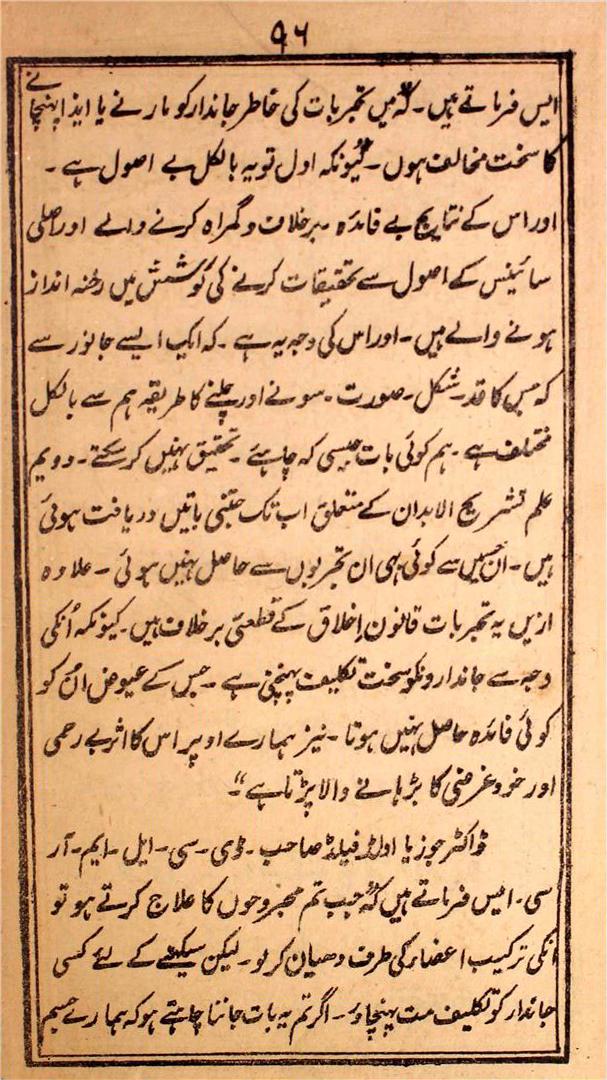 ۹۶
ایس فرماتے ہیں۔ کہ "میں تجربات کی خاطر جاندار کو مارنے یا ایذا پہنچانے
کا سخت مخالف ہوں۔ کیونکہ اول تو یہ بالکل بے اصول ہے۔
اور اس کے نتایج بے فائدہ۔ برخلاف و گمراہ کرنے والے اور اصلی
سائینس کے اصول سے تحقیقات کرنے کی کوشش میں رخنہ انداز
ہونے والے ہیں۔ اور اس کی وجہ یہ ہے۔ کہ ایک ایسے جانور سے
کہ جس کا قد۔ شکل۔ صورت۔ سونے اور چلنے کا طریقہ ہم سے بالکل
مختلف ہے۔ ہم کوئی بات جیسی کہ چاہئے۔ تحقیق نہیں کر سکتے۔ دویم
علم تشریح الابدان کے متعلق اب تک جتنی باتیں دریافت ہوئی
ہیں۔ ان میں سے کوئی بھی ان تجربوں سے حاصل نہیں ہوئی۔ علاوہ
ازیں یہ تجربات قانون اخلاق کے قطعی برخلاف ہیں۔ کیونکہ اُنکی
وجہ سے جاندارونکو سخت تکلیف پہنچتی ہے۔ جس کے عیوض اُن کو
کوئی فائدہ حاصل نہیں ہوتا۔ نیز ہمارے اوپر اس کا اثر بے رحمی
اور خود غرضی کا بڑہانے والا پڑتا ہے"۔
ڈاکٹر جوزیا اولڈ فیلڈ صاحب۔ ڈی۔ سی۔ ایل۔ ایم۔ آر
سی۔ ایس فرماتے ہیں کہ "جب تم مجروحوں کا علاج کرتے ہو تو
انکی ترکیب اعضاء کی طرف دھیان کر لو۔ لیکن سیکھنے کے لئے کسی
جاندار کو تکلیف مت پہنچاؤ۔ اگر تم یہ بات جاننا چاہتے ہو کہ ہمارے جسم